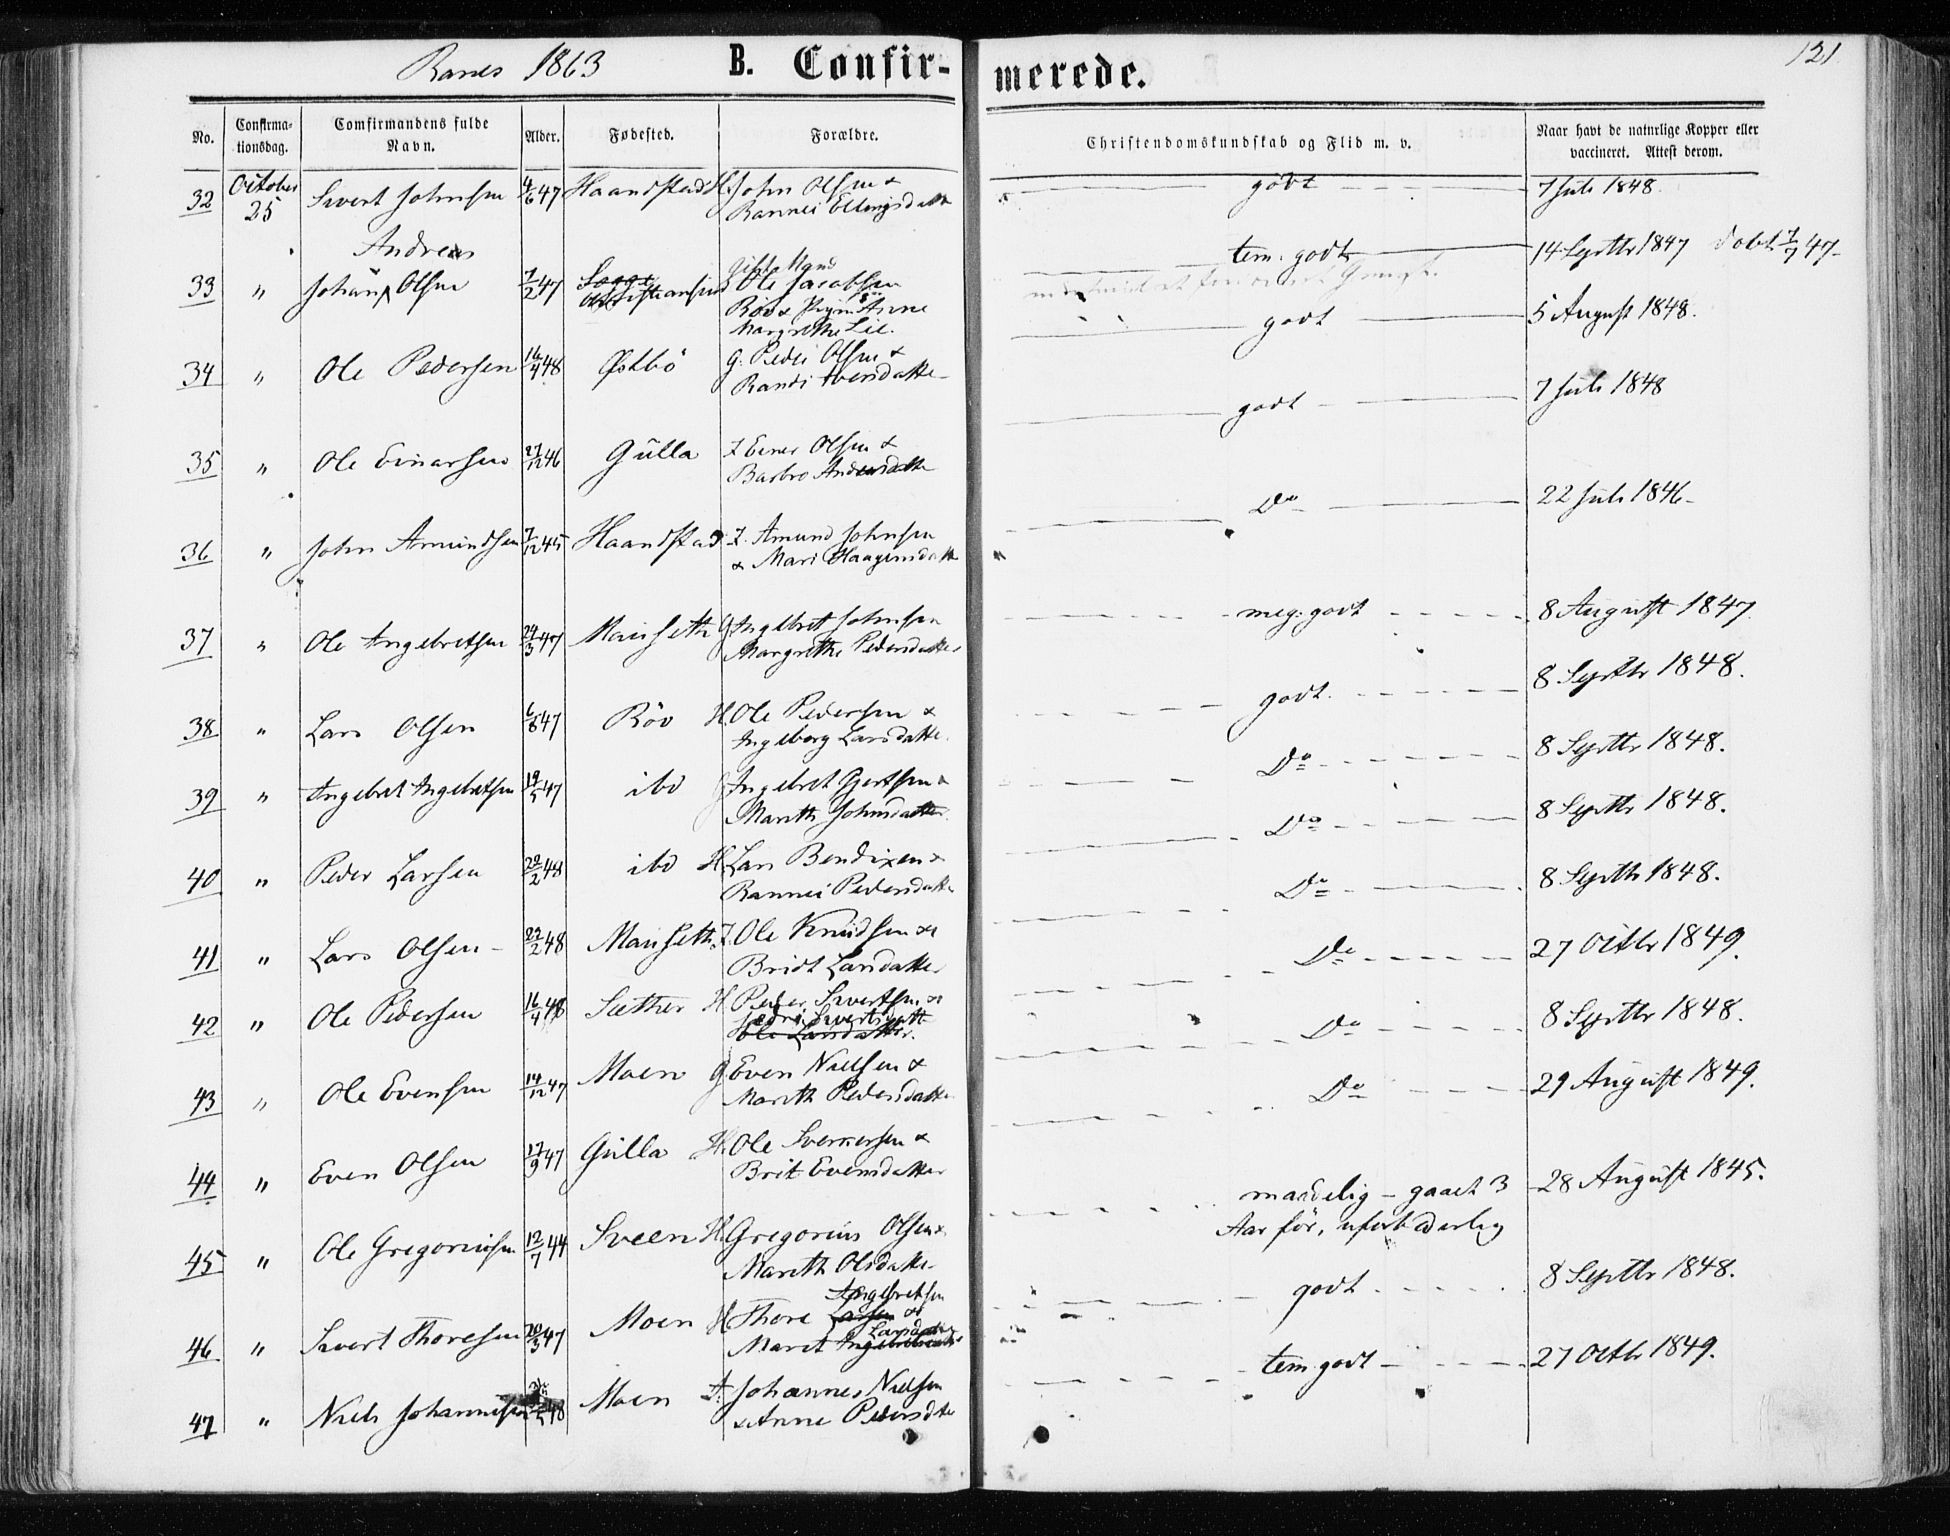 Ranes 1863 B. Confir-
merede. 121
No. Confirma-tionsdag. Comfirmandens fulde Navn. Alder. Fødested. Forældre. Christendomskundskab og Flid m. v. Naar havt de naturlige Kopper eller vaccineret. Attest derom.
32 October 25 Sivert Johnsen 4/6 47 Haandstad H. John Olsen &
Rannei Ellingsdatter godt 7 Juli 1848.
Andreas
33 " Johan Olsen 7/2 47 Sogge Gift Mand
Ole Jacobsen
Röv & Pigen Anne
Margrethe Lie. tem. godt 14 Septbr 1847 döbt 7/7 47
34 " Ole Pedersen 16/4 48 Østbö G. Peder Olsen &
Randi Iversdatter godt 5 August 1848.
35 " Ole Einarsen 27/12 46 Gülla I Einer Olsen &
Barbro Andersdatter godt 7 Juli 1848
36 " John Amundsen 7/12 45 Haandstad I. Amund Johnsen
& Mari Haagensdatter Do 22 Juli 1846
37 " Ole Ingebretsen 24/3 47 Mauseth G Ingebret Johnsen
Margrethe Pedersdatter meg. godt 8 August 1847.
38 " Lars Olsen 6/8 47 Röv H. Ole Pedersen &
Ingeborg Larsdatter godt. 8 Septbr 1848.
39 " Ingebret Ingebretsen 19/5 47 ibd G Ingebret Gjertsen &
Marith Johnsdatter Do 8 Septbr 1848.
40 " Peder Larsen 29/2 48 ibd H. Lars Bendixen &
Rannei Pedersdatter Do 8 Septbr 1848.
41 " Lars Olsen 22/2 48 Mauseth I. Ole Knudsen &
Bridt Larsdatter Do 8 Septbr 1848.
42 " Ole Pedersen 16/4 48 Sæther H Peder Sivertsen &
Sivertsdatt
Larsdatter. Do 27 Octbr 1849.
43 " Ole Evensen 14/12 47 Moen G. Even Nielsen &
Marith Pedersdatter Do 8 Septbr 1848.
44 " Even Olsen 17/9 47 Gülla H. Ole Sverkersen &
Brit Evensdatter Do 29 August 1849.
45 " Ole Gregoriusen 12/7 44 Sveen H. Gregorius Olsen &
Marith Olsdatter maadelig – gaaet 3
Aar för, uforbederlig 28 August 1845.
46 " Sivert Thoresen 20/3 47 Moen H Thore Larsen Ingebretsen &
Marit Ingebretsdatter Larsdatter godt 8 Septbr 1848.
47 " Niels Johannesen 48 Moen I. Johannes Nielsen
& Anne Pedersdtr tem. godt 27 Octbr 1849.